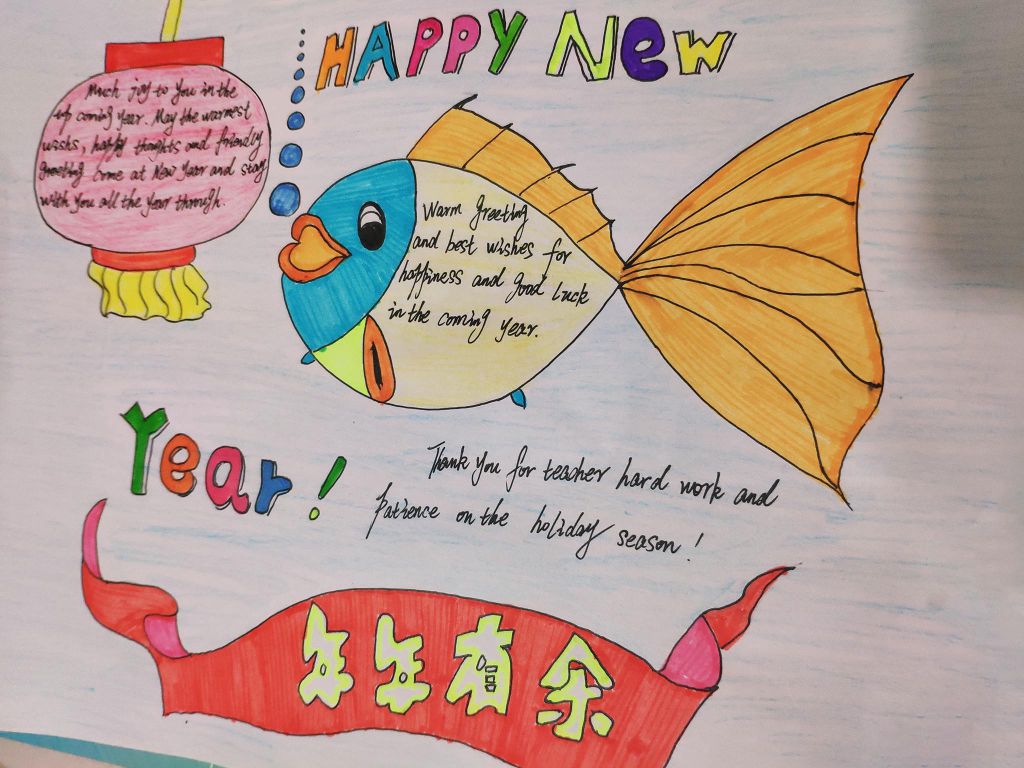 HAPPY NEW
Much joy to you in the
up coming year. May the warmest
wishs, happy thoughts and friendly
greeting come at New Year and stay
with you all the year through.
Warm greeting
and best wishes for
happiness and good luck
in the coming year.
Year!
Thank you for teacher hard work and
Patience on the holiday season!
年年有余